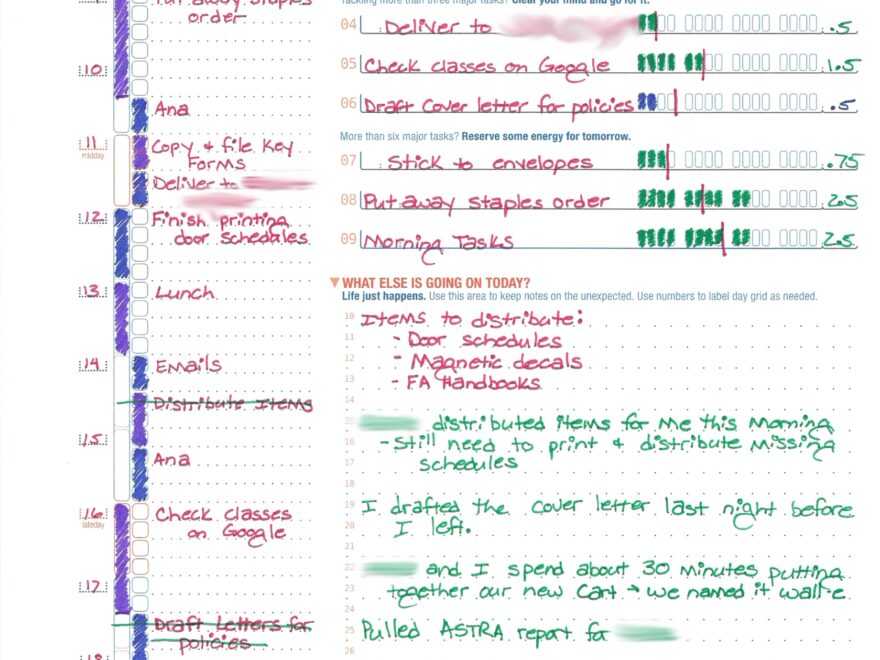 Put away Staples
order
10
Ana
11
midday
Copy & file key
Forms
Deliver to
12
Finish printing
door schedules
13
Lunch
14
Emails
Distribute Items
15
Ana
16
lateday
Check classes
on Google
17
Draft Letters for
policies
18
Tackling more than three major tasks? Clear your mind and go for it.
04 Deliver to .5
05 Check classes on Google 1.5
06 Draft Cover letter for policies .5
More than six major tasks? Reserve some energy for tomorrow.
07 Stick to envelopes .75
08 Put away Staples order 2.5
09 Morning Tasks 2.5
WHAT ELSE IS GOING ON TODAY?
Life just happens. Use this area to keep notes on the unexpected. Use numbers to label day grid as needed.
10 Items to distribute:
11 - Door schedules
12 - Magnetic decals
13 - FA Handbooks
14
distributed items for me this morning
16 - Still need to print & distribute missing
17 schedules
18
19 I drafted the cover letter last night before
20 I left.
21
22 and I spend about 30 minutes putting
23 together our new cart → we named it wall-e
24
25 Pulled ASTRA report for
26